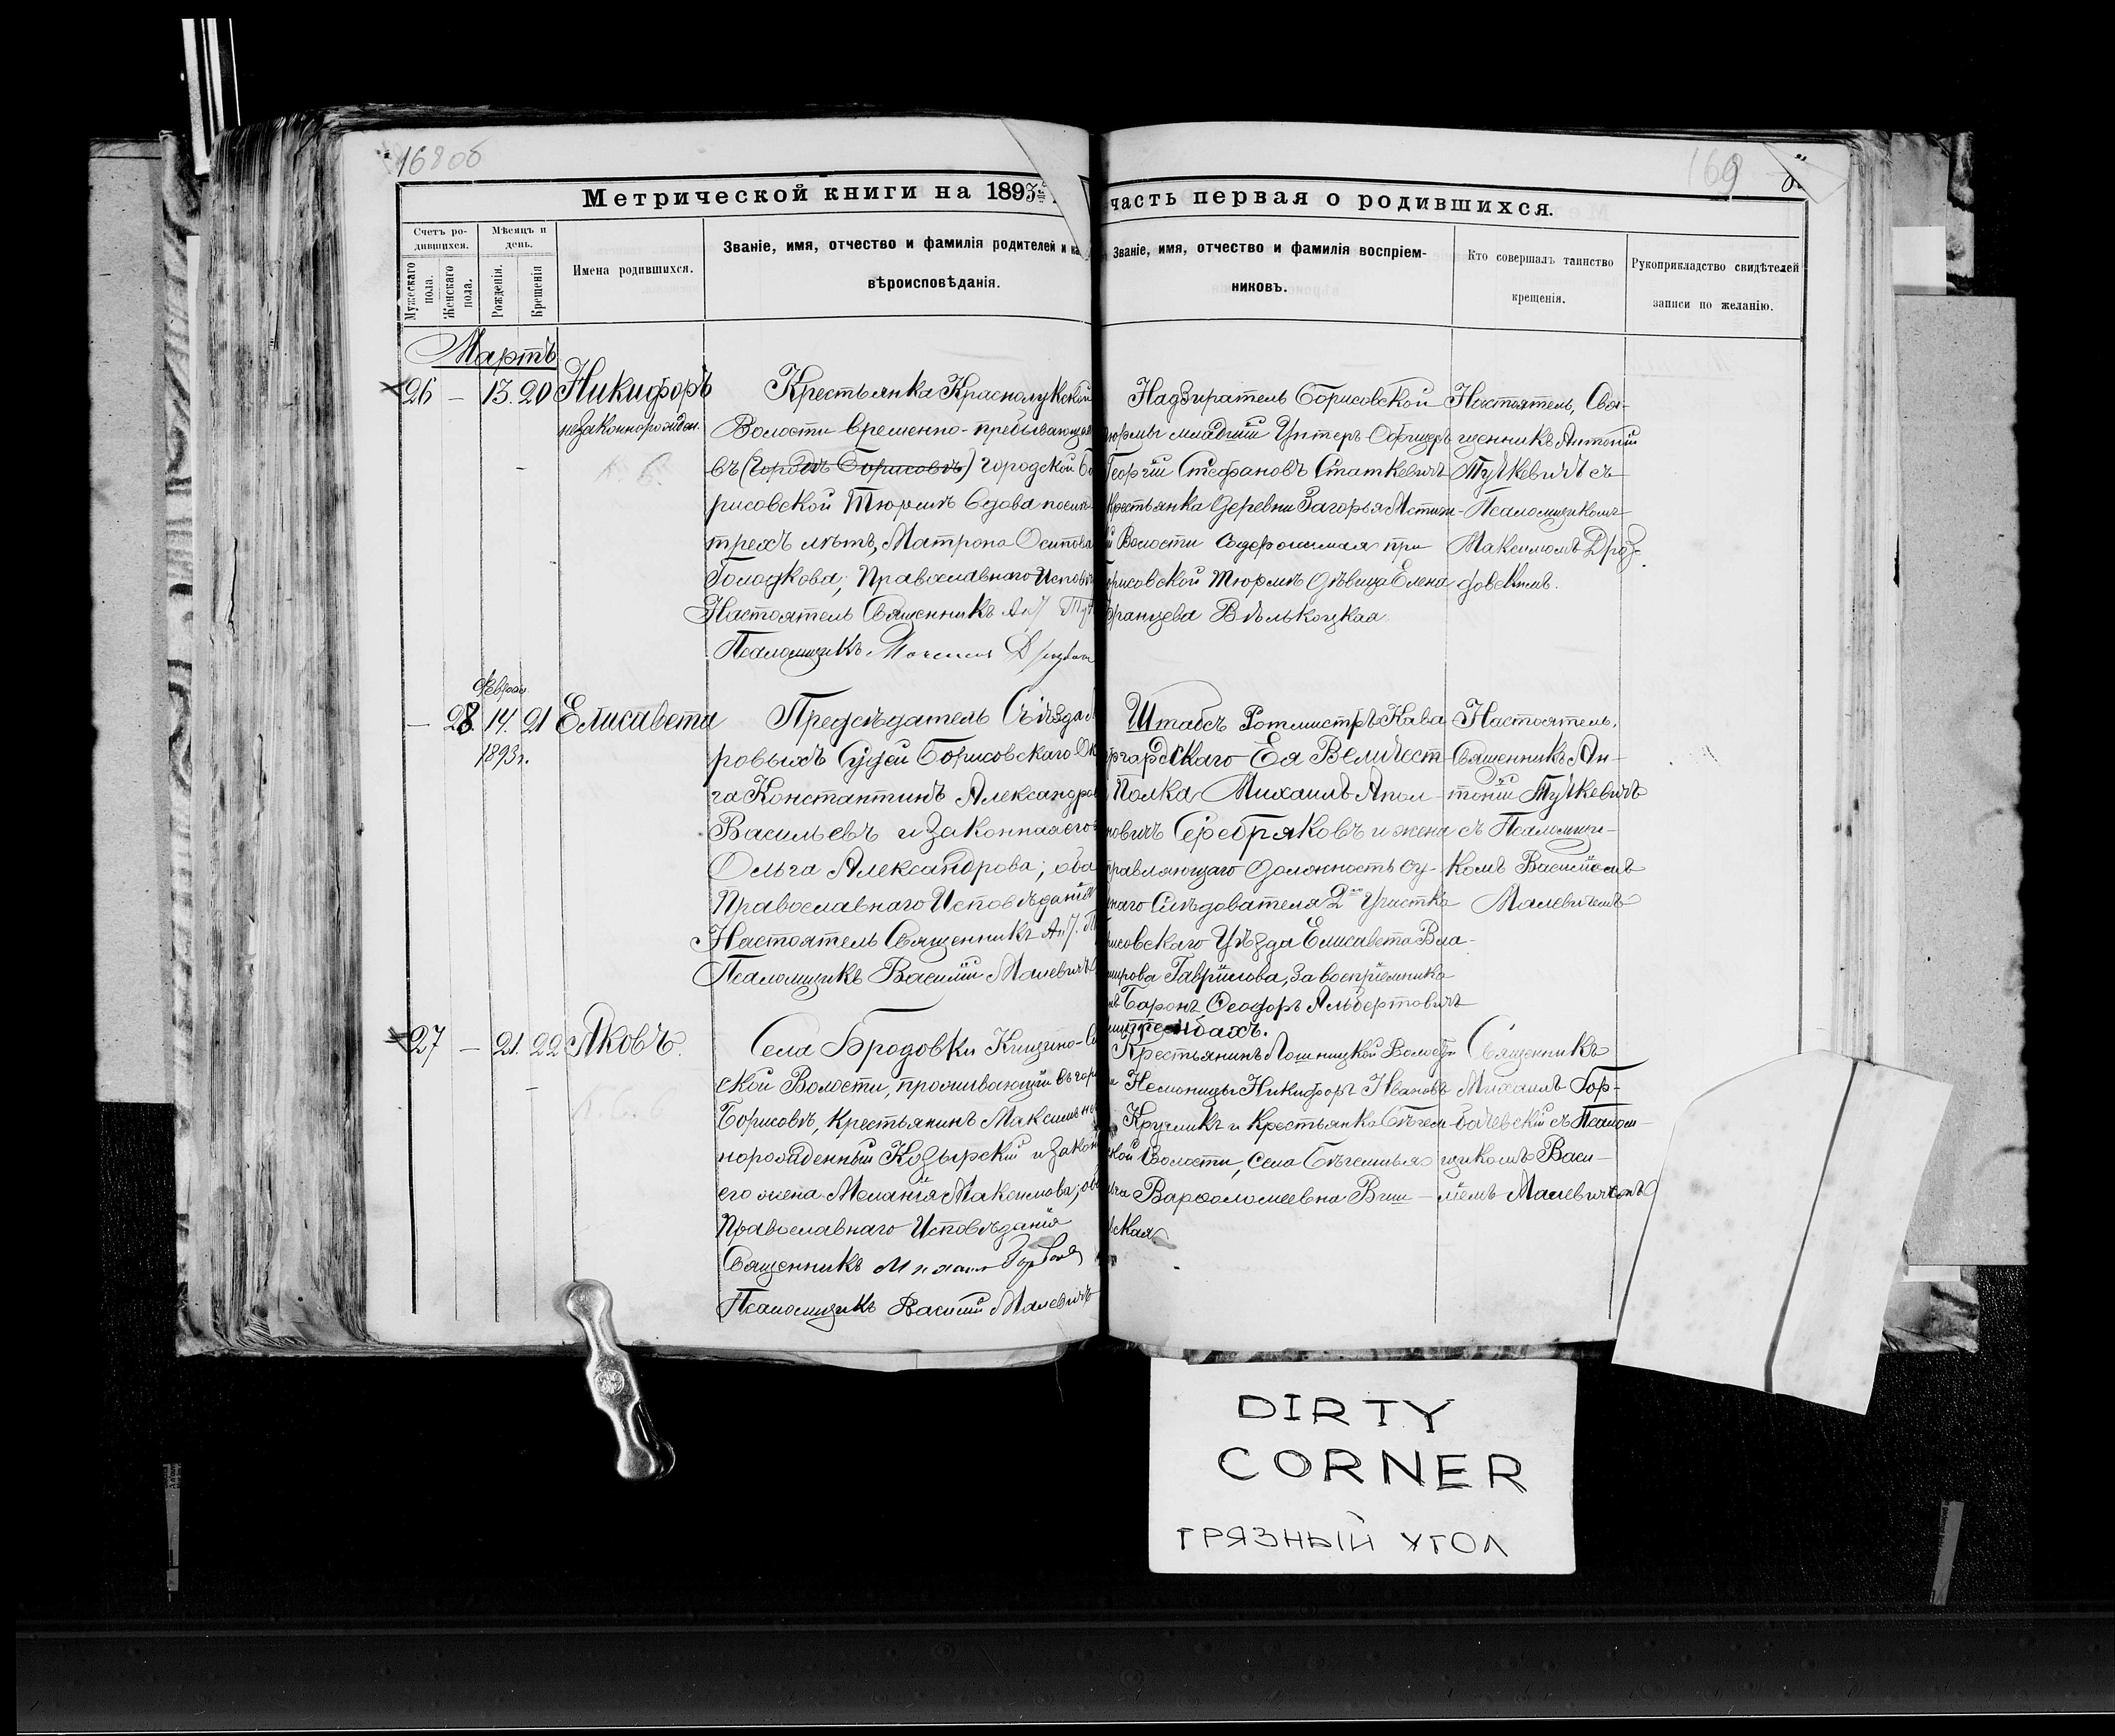 168об
169
Метрической книги на 1893
часть первая о родившихся.
Счетъ ро-
дившихся.
Мѣсяцъ и
день.
Мужескаго
пола.
Женскаго
пола.
Рожденія.
Крещенія
Имена родившихся.
Званіе, имя, отчество и фамилія родителей и ка
вѣроисповѣданія.
Званіе, имя, отчество и фамилія воспріем-
никовъ.
Кто совершалъ таинство
крещенія.
Рукоприкладство свидѣтелей
записи по желанію.
Мартъ
26 — 13. 20 Никифоръ
незаконнорожден.
Крестьянка Краснолукской
Волости временно-пребывающая
въ (городѣ Борисовѣ) городской Бо
рисовской Тюрьмѣ вдова послѣ
трехъ лѣтъ, Матрона Осипова
Голодкова; Православнаго Исповѣ
Настоятель Священникъ Ант
Псаломщикъ
Надзиратель Борисовской
юрьмы младшій Унтеръ Офицеръ
Георгій Стефановъ Статкевичъ
Крестьянка Деревни Загорья Мстиж-
й Волости содержимая при
орисовской Тюрьмѣ дѣвица Елена
Францева Вѣлькоцкая
Настоятель, Свя-
щенникъ Антоній
Тучкевичъ съ
Псаломщикомъ
Максимомъ Дроз-
довскимъ.
Феврал
— 28. 14. 21 Елисавета
1893г.
Предсѣдатель Съѣзда М
ровыхъ Судей Борисовскаго Ок
га Константинъ Александров
Васильевъ и законная его
Ольга Александрова; оба
Православнаго Исповѣданія
Настоятель Священникъ Ант. Т
Псаломщикъ Василій Малевичъ
Штабсъ Ротмистръ Кава
ргардскаго Ея Величест
Полка Михаилъ Апол
новичъ Серебряковъ и жена
правляющаго должность су-
наго Слѣдователя 2го Участка
рисовскаго Уѣзда Елисавета Вла-
мирова Гаврилова, за воспріемника
Баронъ Ѳеодоръ Альбертовичъ
Настоятель,
Священникъ Ан-
тоній Тучкевичъ
съ Псаломщи-
комъ Василіемъ
Малевичемъ
27 — 21. 22 Яковъ.
Села Бродовки Кищино-Сл
ской Волости, проживающій въ гор
Борисовѣ, крестьянинъ Максимъ не
норожденный Козырскій и закон
его жена Меланія Максимова; об
Православнаго Исповѣданія
Священникъ Михаилъ Горба
Псаломщикъ Василій Малевичъ
Крестьянинъ Лошницкой Волости
и Немоницы Никифоръ Ивановъ
Кручликъ и крестьянка Бѣгом-
ской Волости, села Бѣгомля
Варѳоломеевна Виш-
ская
Священникъ
Михаилъ Гор-
бачевскій съ Псалом-
щикомъ Васи-
ліемъ Малевичемъ
DIRTY
CORNER
ГРЯЗНЫЙ УГОЛ